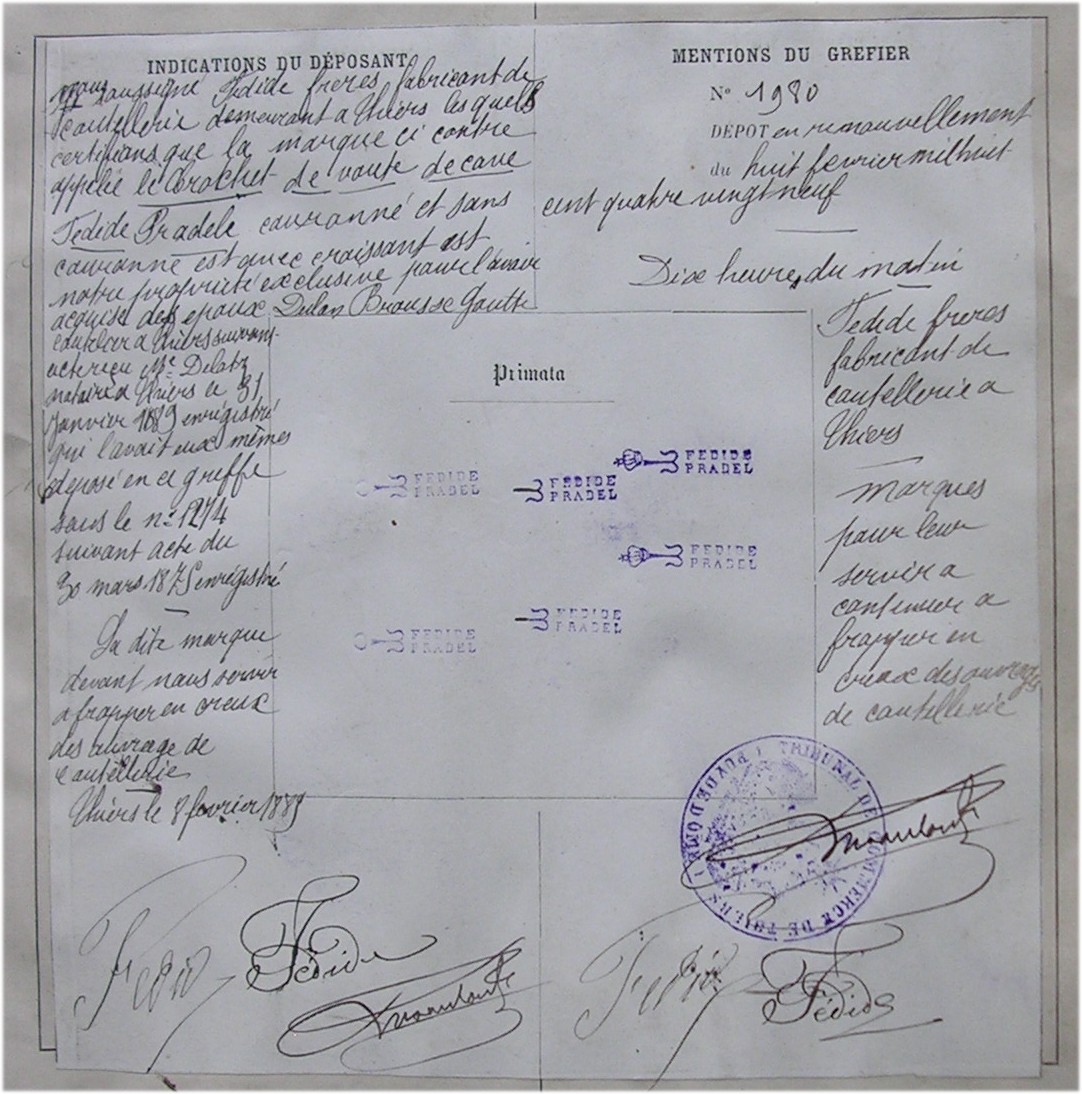 INDICATIONS DU DÉPOSANT
nous soussigné Fédide frères fabricant de
coutellerie demeurant a Thiers les quels
certifions que la marque ci contre
appelée le Crochet de voute de cave
Fedide Pradel couronné et sans
couronne est avec croissant est
notre propriété exclusive pour l'avoir
acquise des epoux Dulan Brousse Goutte
coutelier a Thiers suivant
acte reçu Me Delotz
notaire a Thiers le 31
Janvier 1889 enregistré
qui l'avait eux mêmes
déposé en ce greffe
sous le no 1274
suivant acte du
30 mars 1875 enregistré
La dite marque
devant nous servir
a frapper en creux
des ouvrage de
Coutellerie
Thiers le 8 fevrier 1889
MENTIONS DU GREFIER
No 1980
DÉPOT en renouvellement
du huit fevrier mil huit
cent quatre vingt neuf
Dix heures du matin
Fedide freres
fabricant de
coutellerie a
Thiers
marques
pour leur
servir a
continuer a
frapper en
creux des ouvrages
de coutellerie
Primata
FEDIDE
PRADEL
FEDIDE
PRADEL
FEDIDE
PRADEL
FEDIDE
PRADEL
FEDIDE
PRADEL
FEDIDE
PRADEL
TRIBUNAL DE COMMERCE DE THIERS (PUY DE DOME)
Fedide
Fédide
Fedide
Fédide